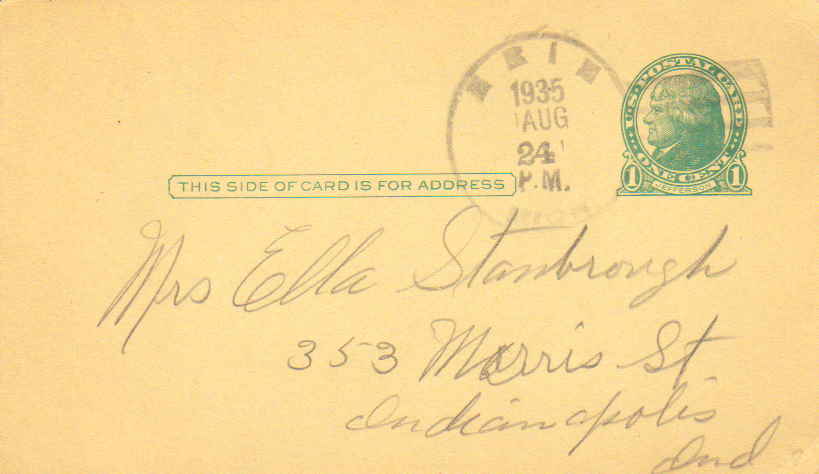 ERIE
1935
AUG
24
P.M.
MICH
U.S. POSTAL CARD
ONE CENT
1 JEFFERSON 1
THIS SIDE OF CARD IS FOR ADDRESS
Mrs Ella Stanbrough
353 Morris St
Indianapolis
Ind